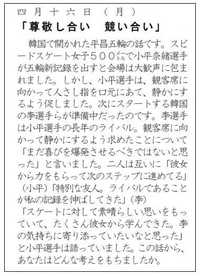 四月十六日（月）
「尊敬し合い　競い合い」
　韓国で開かれた平昌五輪の話です。スピ
ードスケート女子５００㍍で小平奈緒選手
が五輪新記録を出すと会場は大歓声に包ま
れました。しかし、小平選手は、観客席に
向かって人さし指を口元にあて、静かにす
るよう促しました。次にスタートする韓国
の李選手らが準備中だったのです。李選手
は小平選手の長年のライバル。観客席に向
かって静かにするよう求めたことについて
「まだ喜びを爆発させるべきではないと思
った」と言いました。二人は互いに「彼女
から力をもらって次のステップに進めてる」
（小平）「特別な友人。ライバルであること
が私の記録を伸ばしてきた」（李）
「スケートに対して素晴らしい思いをもっ
ていて、たくさん彼女から学んできた。李
の気持ちに寄り添っていたいなと思った」
と小平選手は語っていました。この話から、
あなたはどんな考えをもちましたか。